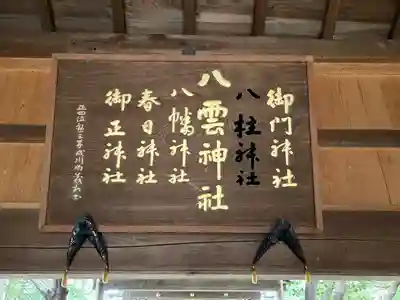 御門神社
八柱神社
八雲神社
八幡神社
春日神社
御正神社